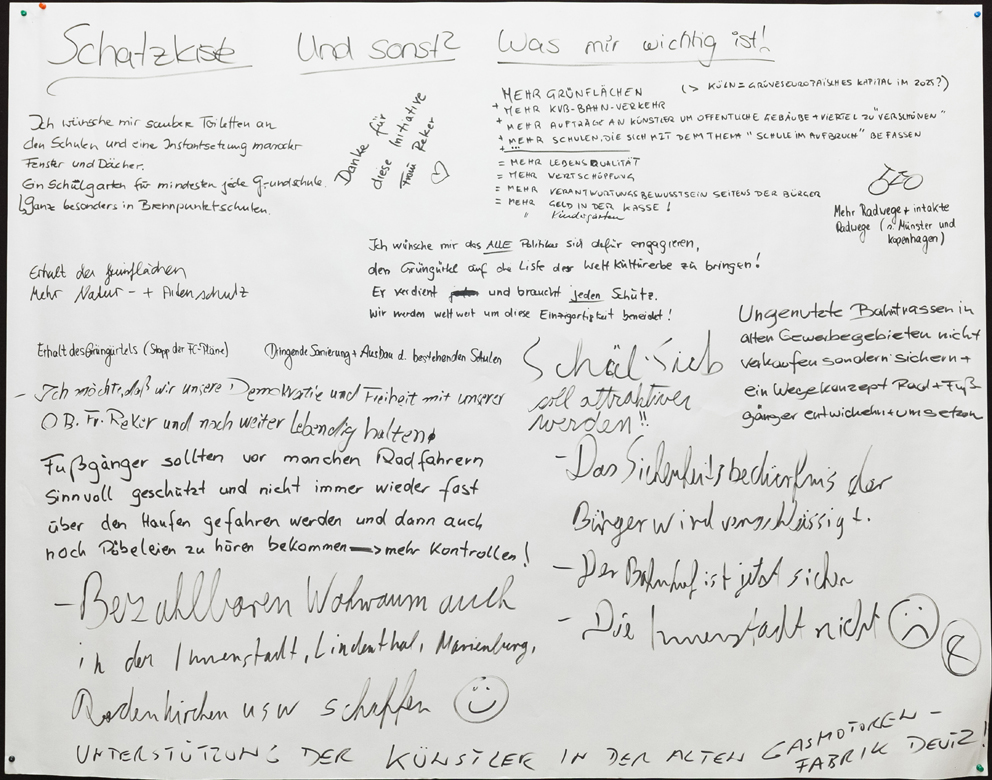 Schatzkiste Und sonst? Was mir wichtig ist!
Ich wünsche mir saubere Toiletten an
den Schulen und eine Instantsetzung maroder
Fenster und Dächer.
Ein Schulgarten für mindesten jede Grundschule.
↳ Ganz besonders in Brennpunktschulen.
Danke für
diese Initiative
Frau Reker
♡
MEHR GRÜNFLÄCHEN (> KÖLN = GRÜNES EUROPÄISCHES KAPITAL IM 2025?)
+ MEHR KVB-BAHN-VERKEHR
+ MEHR AUFTRÄGE AN KÜNSTLER UM ÖFFENTLICHE GEBÄUDE + VIERTEL ZU "VERSCHÖNEN"
+ MEHR SCHULEN, DIE SICH MIT DEM THEMA "SCHULE IM AUFBRUCH" BEFASSEN
+ ...
= MEHR LEBENSQUALITÄT
= MEHR WERTSCHÖPFUNG
= MEHR VERANTWORTUNGSBEWUSSTSEIN SEITENS DER BÜRGER
= MEHR GELD IN DER KASSE!
" Kindergärten
Mehr Radwege + intakte
Radwege (s. Münster und
Kopenhagen)
Erhalt der Grünflächen
Mehr Natur- + Artenschutz
Ich wünsche mir das ALLE Politiker sich dafür engagieren,
den Grüngürtel auf die Liste des Weltkulturerbe zu bringen!
Er verdient und braucht jeden Schutz.
Wir werden weltweit um diese Einzigartigkeit beneidet!
Erhalt des Grüngürtels (Stopp der FC-Pläne)
Dringende Sanierung + Ausbau d. bestehenden Schulen
- Ich möchte, daß wir unsere Demokratie und Freiheit mit unserer
OB. Fr. Reker und noch weiter lebendig halten
Fußgänger sollten vor manchen Radfahrern
sinnvoll geschützt und nicht immer wieder fast
über den Haufen gefahren werden und dann auch
noch Pöbeleien zu hören bekommen → mehr Kontrollen!
- Bezahlbaren Wohnraum auch
in der Innenstadt, Lindenthal, Marienburg,
Rodenkirchen usw schaffen ☺
Schäl-Sieb
soll attraktiver
werden!!
Ungenutzte Bahntrassen in
alten Gewerbegebieten nicht
verkaufen sondern sichern +
ein Wegekonzept Rad + Fuß-
gänger entwickeln + umsetzen
- Das Sicherheitsbedürfnis der
Bürger wird vernachlässigt.
- Der Bahnhof ist jetzt sicher
- Die Innenstadt nicht ☹
UNTERSTÜTZUNG DER KÜNSTLER IN DER ALTEN GASMOTOREN-
FABRIK DEUTZ!